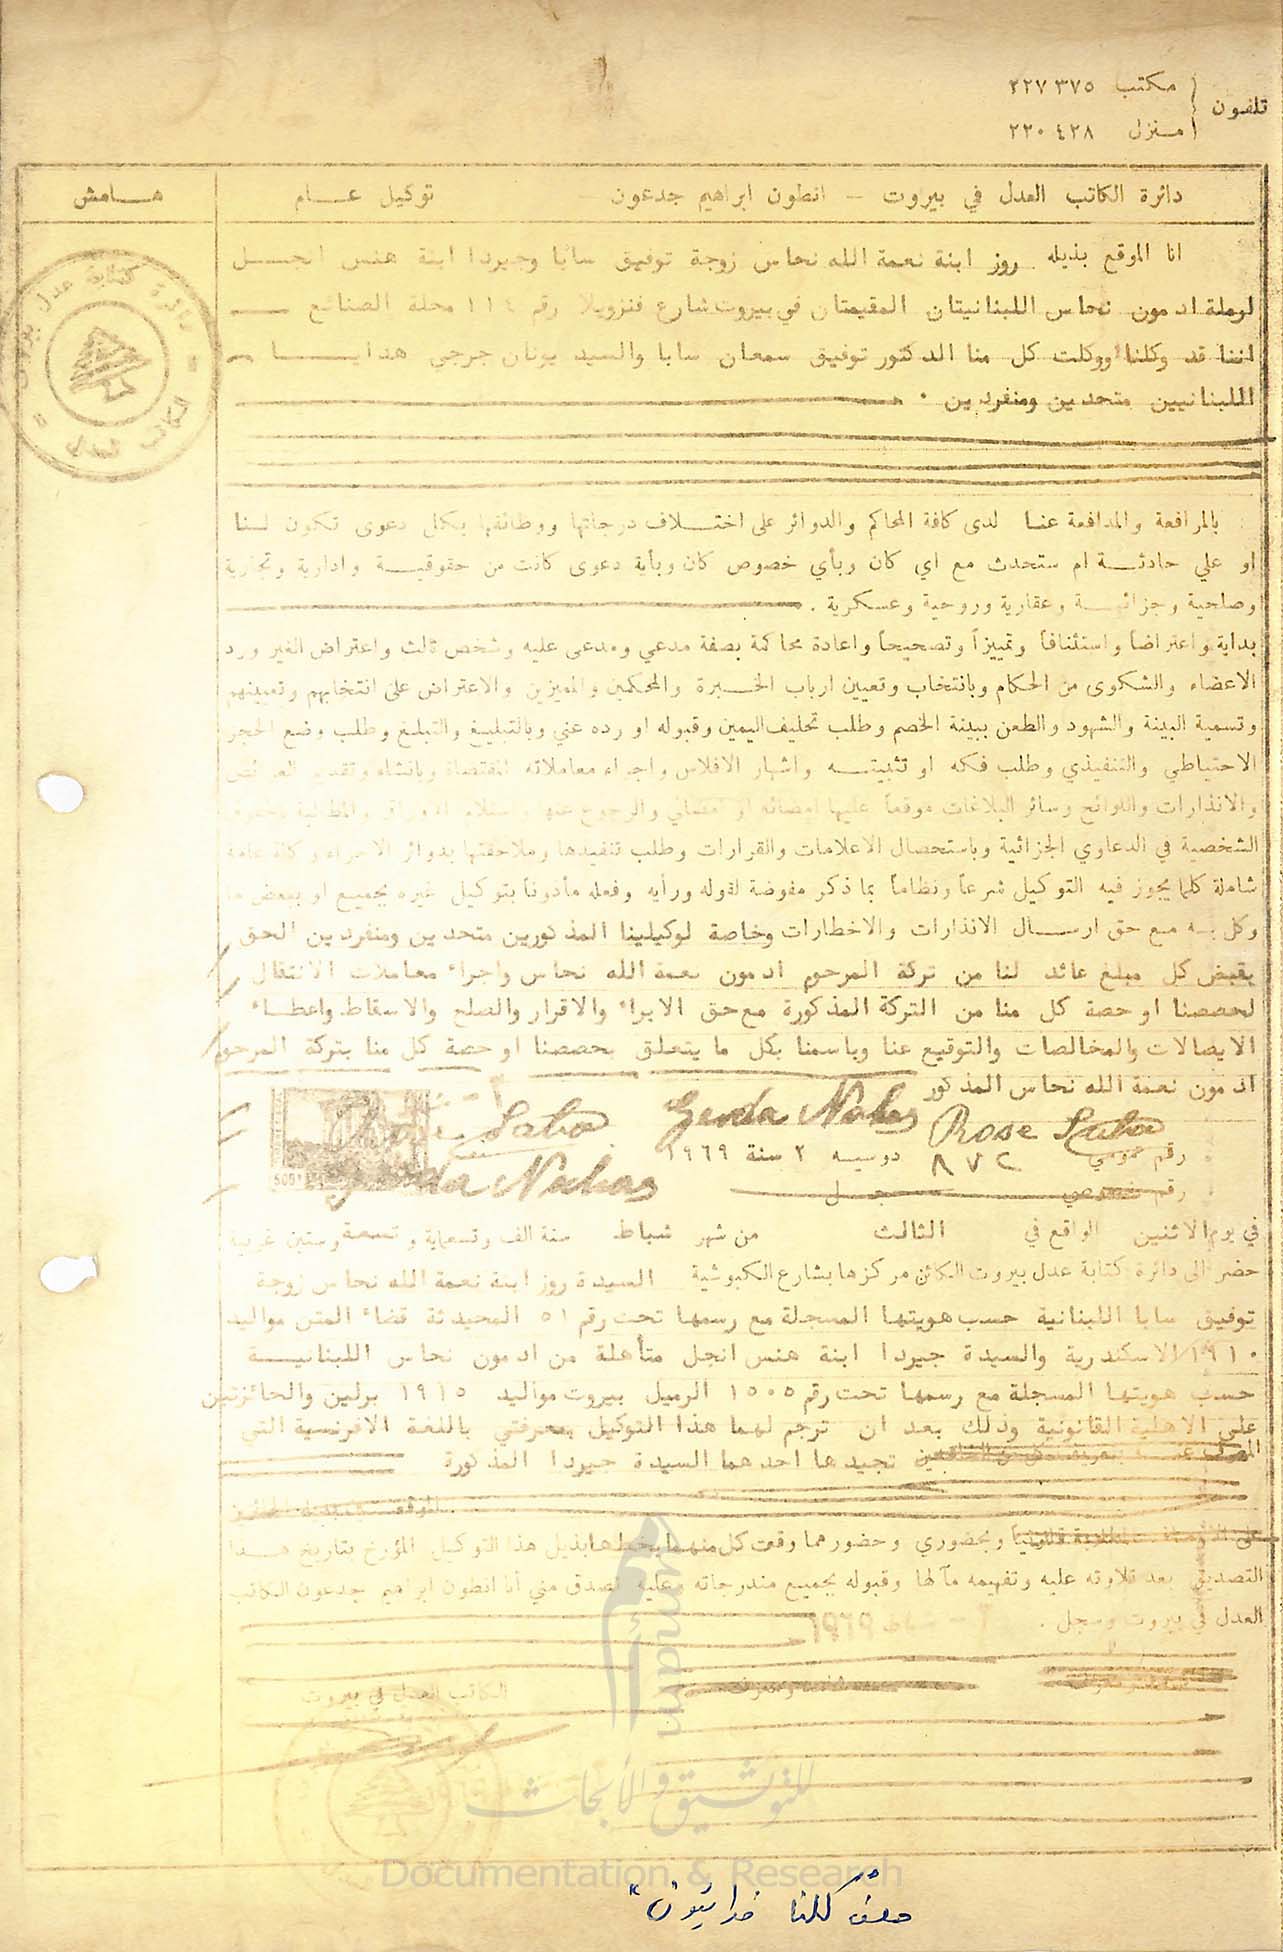 تلفون { مكتب ٢٢٧٣٧٥
منزل ٢٢٠٤٢٨
دائرة الكاتب العدل في بيروت - انطون ابراهيم جدعون - توكيل عـام
هـامش
انا الموقع بذيله روز ابنة نعمة الله نحاس زوجة توفيق سابا وجيردا ابنة هنس انجـل
ارملة ادمون نحاس اللبنانيتان المقيمتان في بيروت شارع فنزويلا رقم ١١٤ محلة الصنائع
اننا قد وكلنا ووكلت كل منا الدكتور توفيق سمعان سابا والسيد يونان جرجي هدايـا
اللبنانيين متحدين ومنفردين .
بالمرافعة والمدافعة عنـا لدى كافة المحاكم والدوائر على اختـلاف درجاتها ووظائفها بكل دعوى تكون لنـا
او علي حادثـة ام ستحدث مع اي كان وبأي خصوص كان وبأية دعوى كانت من حقوقيـة وادارية وتجارية
وصلحية وجزائيـة وعقارية وروحية وعسكرية .
بداية واعتراضاً واستئنافاً وتمييزاً وتصحيحاً واعادة محاكمة بصفة مدعي ومدعى عليه وشخص ثالث واعتراض الغير ورد
الاعضاء والشكوى من الحكام وبانتخاب وتعيين ارباب الخـبرة والمحكمين والمميزين والاعتراض على انتخابهم وتعيينهم
وتسمية البينة والشهود والطعن ببينة الخصم وطلب تحليف اليمين وقبوله او رده عني وبالتبليغ والتبلغ وطلب وضع الحجز
الاحتياطي والتنفيذي وطلب فكه او تثبيتـه واشهار الافلاس واجراء معاملاته المقتضاة وبانشاء وتقديم العرائض
والانذارات واللوائح وسائر البلاغات موقعاً عليها بامضائه او امضائي والرجوع عنها
الشخصية في الدعاوي الجزائية وباستحصال الاعلامات والقرارات وطلب تنفيذها وملاحقتها بدوائر الاجراء وكالة عامة
شاملة كلما يجوز فيه التوكيل شرعاً ونظاماً بما ذكر مفوضة لقوله ورأيه وفعله مأذوناً بتوكيل غيره بجميع او ببعض ما
وكل بـه مـع حق ارسـال الانذارات والاخطارات وخاصة لوكيلينا المذكورين متحدين ومنفردين الحق
بقبض كل مبلغ عائد لنا من تركة المرحوم ادمون نعمة الله نحاس واجراء معاملات الانتقال
لحصصنا او حصة كل منا من التركة المذكورة مع حق الابراء والاقرار والصلح والاسقاط واعطـاء
الايصالات والمخالصات والتوقيع عنا وباسمنا بكل ما يتعلق بحصصنا او حصة كل منا بتركة المرحوم
ادمون نعمة الله نحاس المذكور
Rose Saba Gerda Nahas Rose Saba
رقم عمومي ٨٧٢ دوسيه ٢ سنة ١٩٦٩
Gerda Nahas
رقم خصوصي سجـل
في يوم الاثنين الواقع في الثالث من شهر شباط سنة الف وتسعماية وتسعة وستين غربية
حضر الى دائرة كتابة عدل بيروت الكائن مركزها بشارع الكبوشية السيدة روز ابنة نعمة الله نحاس زوجة
توفيق سابا اللبنانية حسب هويتها المسجلة مع رسمها تحت رقم ٥١ المحيدثة قضاء المتن مواليد
١٩١٠ الاسكندرية والسيدة جيردا ابنة هنس انجل متأهلة من ادمون نحاس اللبنانيـة
حسب هويتها المسجلة مع رسمها تحت رقم ١٥٠٥ الرميل بيروت مواليد ١٩١٥ برلين والحائزتين
على الاهلية القانونية وذلك بعد ان ترجم لهما هذا التوكيل بمعرفتي باللغة الافرنسية التي
تجيدها احدهما السيدة جيردا المذكورة
وبحضوري وحضورهما وقعت كل منهما بخطها بذيل هذا التوكيل المؤرخ بتاريخ هـذا
التصديق بعد تلاوته عليه وتفهيمه مآلها وقبوله بجميع مندرجاته وعليه نصدق مني أنا انطون ابراهيم جدعون الكاتب
العدل في بيروت وسجل . ١٩٦٩
الكاتب العدل في بيروت
للتوثيق والأبحاث
Documentation & Research